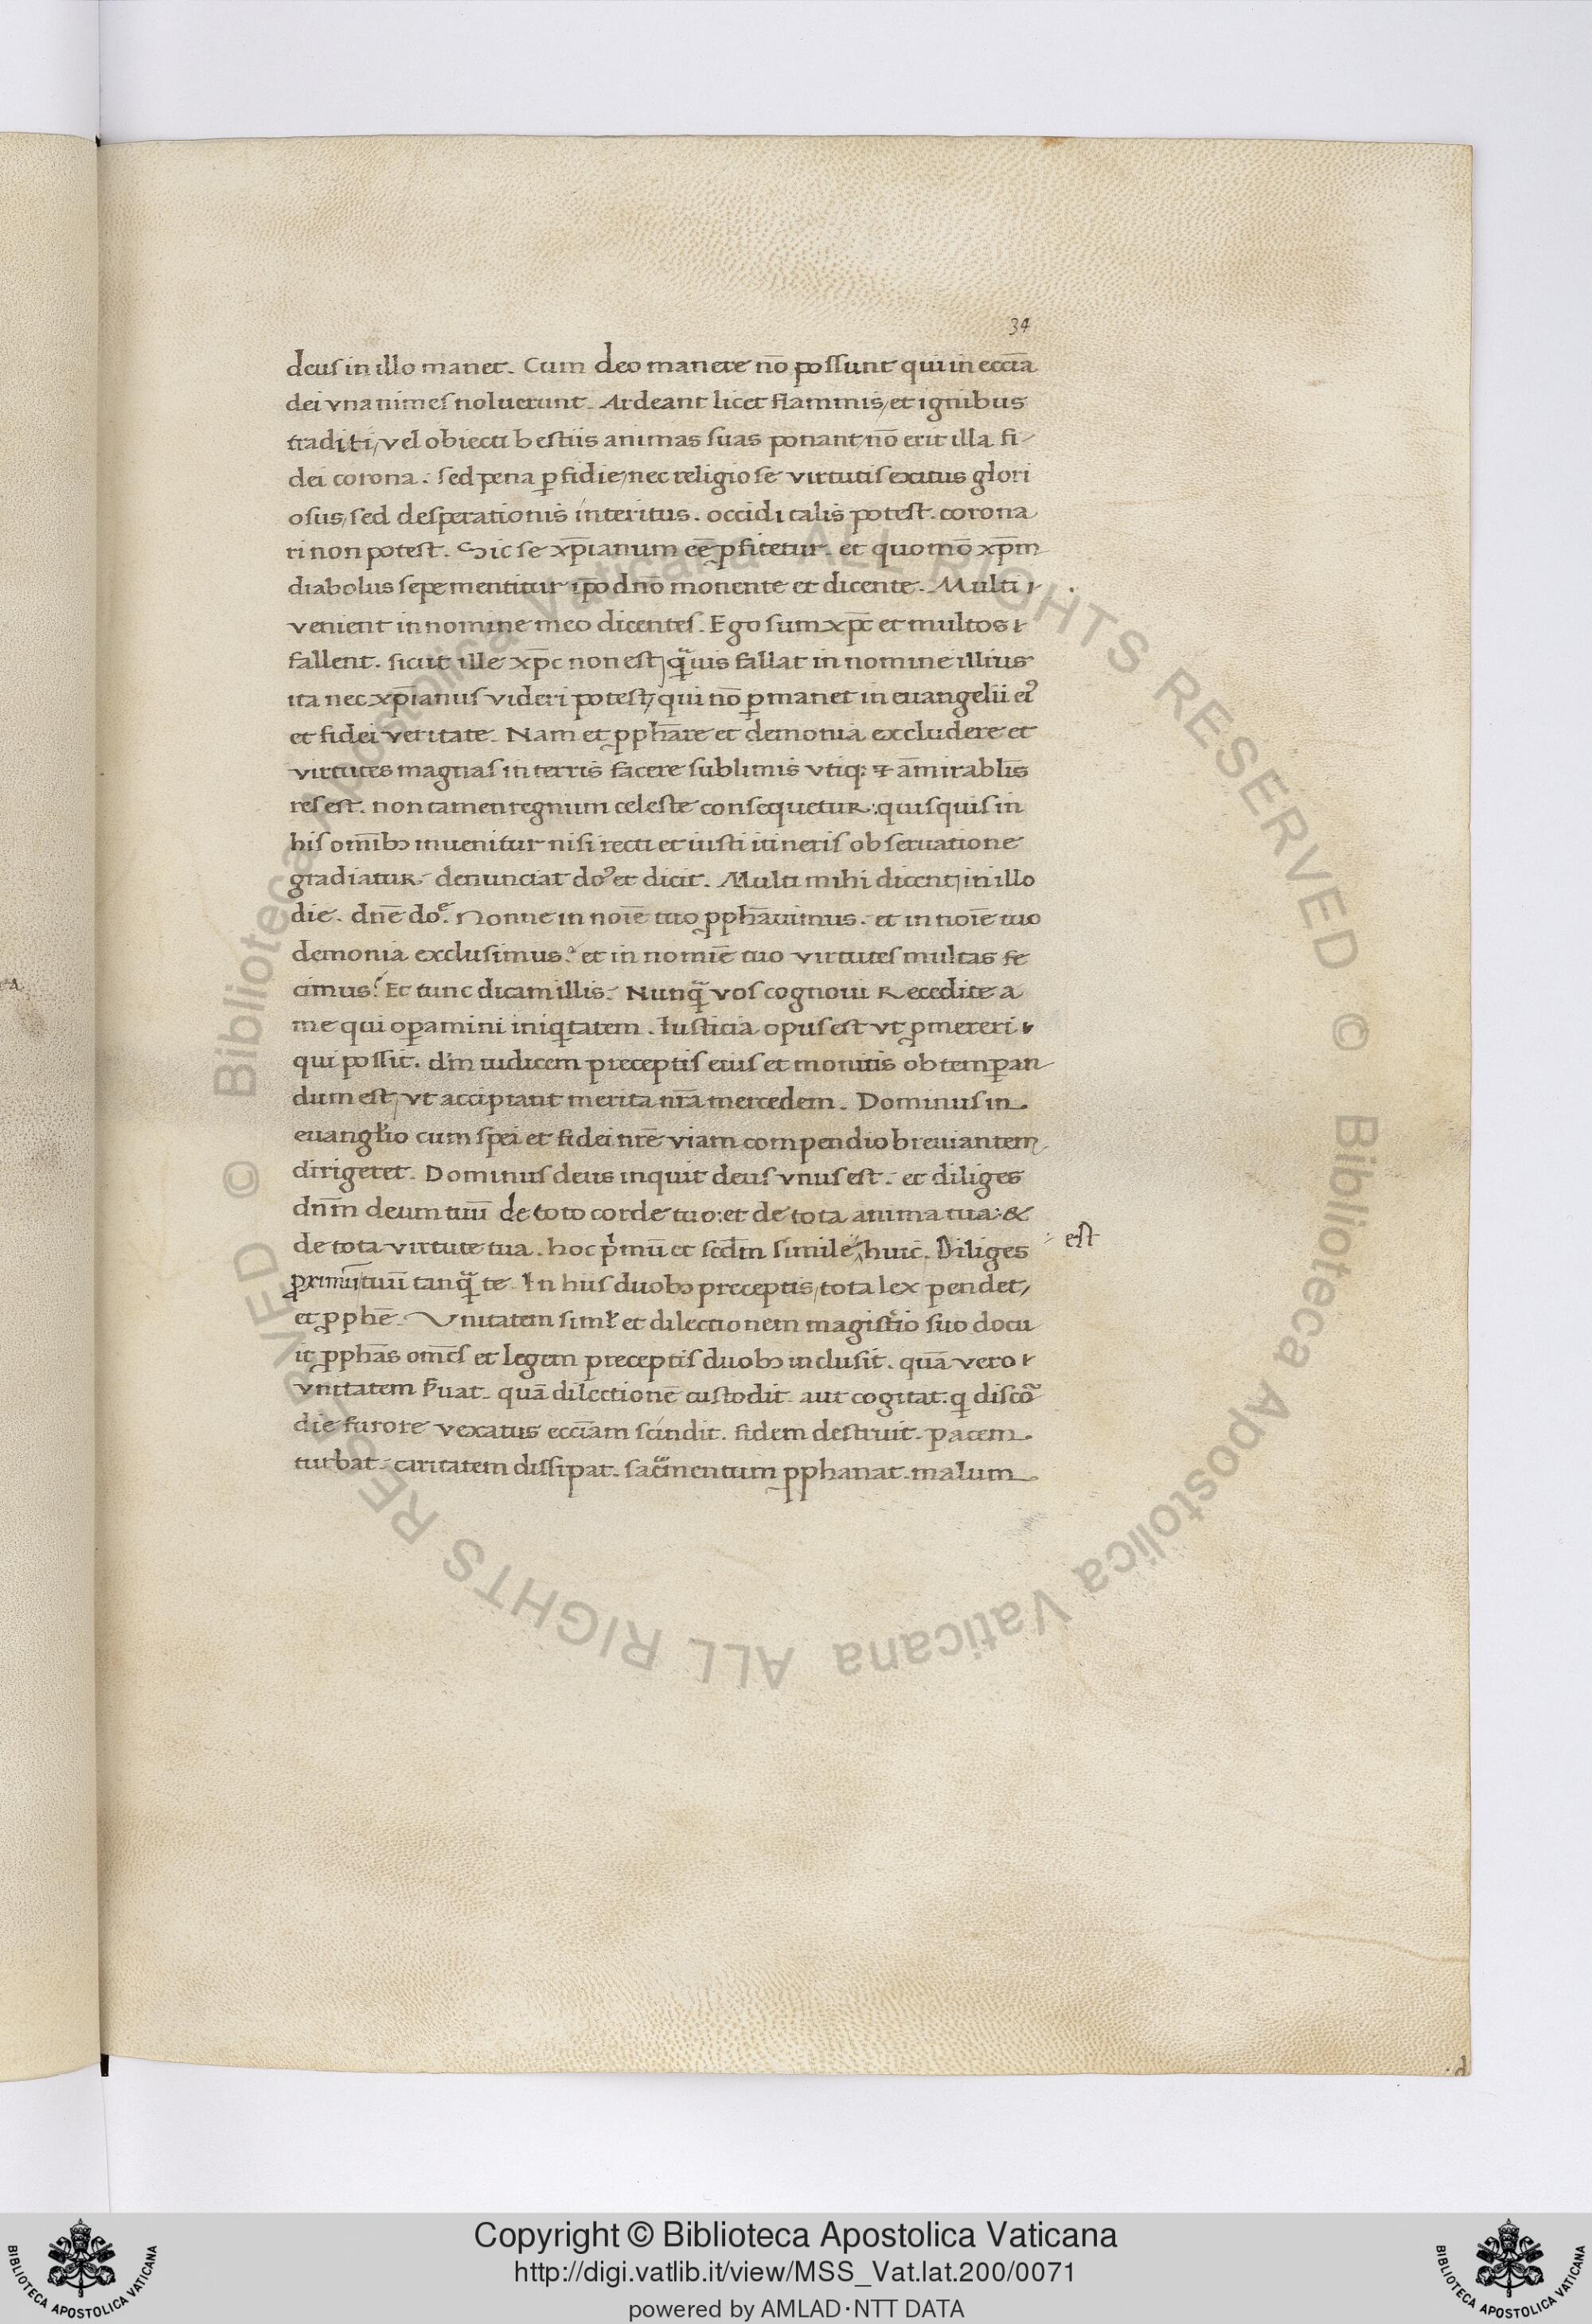 34
deus in illo manet. Cum deo manere nō possunt qui in eccīa
dei vnanimes noluerunt. Ardeant licet flammis, et ignibus
traditi, vel obiecti bestiis animas suas ponant, nō erit illa fi-
dei corona. sed pena ꝑfidie, nec religiose virtutis exitus glori
osus, sed desperationis interitus. occidi talis potest. corona
ri non potest. Sic se xp̄ianum eē ꝓfitetur. et quomō xp̄m
diabolus sepe mentitur ip̄o dn̄o monente et dicente. Multi
venient in nomine meo dicentes. Ego sum xp̄c et multos
fallent. sicut ille xp̄c non est, qͣuis fallat in nomine illius
ita nec xp̄ianus videri potest, qui nō ꝑmanet in euangelii eiꝰ
et fidei veritate. Nam et ꝓphāre et demonia excludere et
virtutes magnas in terris facere sublimis vtiqꝫ & āmirablīs
res est. non tamen regnum celeste consequetur. quisquis in
his om̄ibꝫ inuenitur nisi recti et iusti itineris obseruatione
gradiatur. denunciat doꝰ et dicit. Multi mihi dicent, in illo
die. dn̄e doͤ. Nonne in noīe tuo ꝓphāuimus. et in noīe tuo
demonia exclusimus. et in nomīe tuo virtutes multas fe
cimus. Et tunc dicam illis. Nunqͣ vos cognoui Recedite a
me qui oꝑamini iniqͥtatem. Iusticia opus est vt ꝓmereri
qui possit. dm̄ iudicem preceptis eius et monitis obtemꝑan
dum est, vt accipiant merita nr̄a mercedem. Dominus in
euangłio cum spei et fidei nr̄e viam compendio breuiantem
dirigeret. Dominus deus inquit deus vnus est. et diliges
dn̄m deum tuū de toto corde tuo: et de tota anima tua: &
de tota virtute tua. hoc pͥmū et scd̄m simile huic. Diliges
est
ꝓximū tuū tanqͣ te. In hiis duobꝫ preceptis, tota lex pendet,
et ꝓphē. Vnitatem simł et dilectionem magisterio suo docu
it ꝓphās om̄s et legem preceptis duobꝫ inclusit. quā vero
vnitatem ẜuat. quā dilectionē custodit aut cogitat. qͥ discor
die furore vexatus eccīam scindit. fidem destruit. pacem
turbat. caritatem dissipat. sacͣmentum ꝓphanat. malum
.d
© Biblioteca Apostolica Vaticana ALL RIGHTS RESERVED © Biblioteca Apostolica Vaticana ALL RIGHTS RESERVED
Copyright © Biblioteca Apostolica Vaticana
http://digi.vatlib.it/view/MSS_Vat.lat.200/0071
powered by AMLAD·NTT DATA
BIBLIOTECA APOSTOLICA VATICANA
BIBLIOTECA APOSTOLICA VATICANA